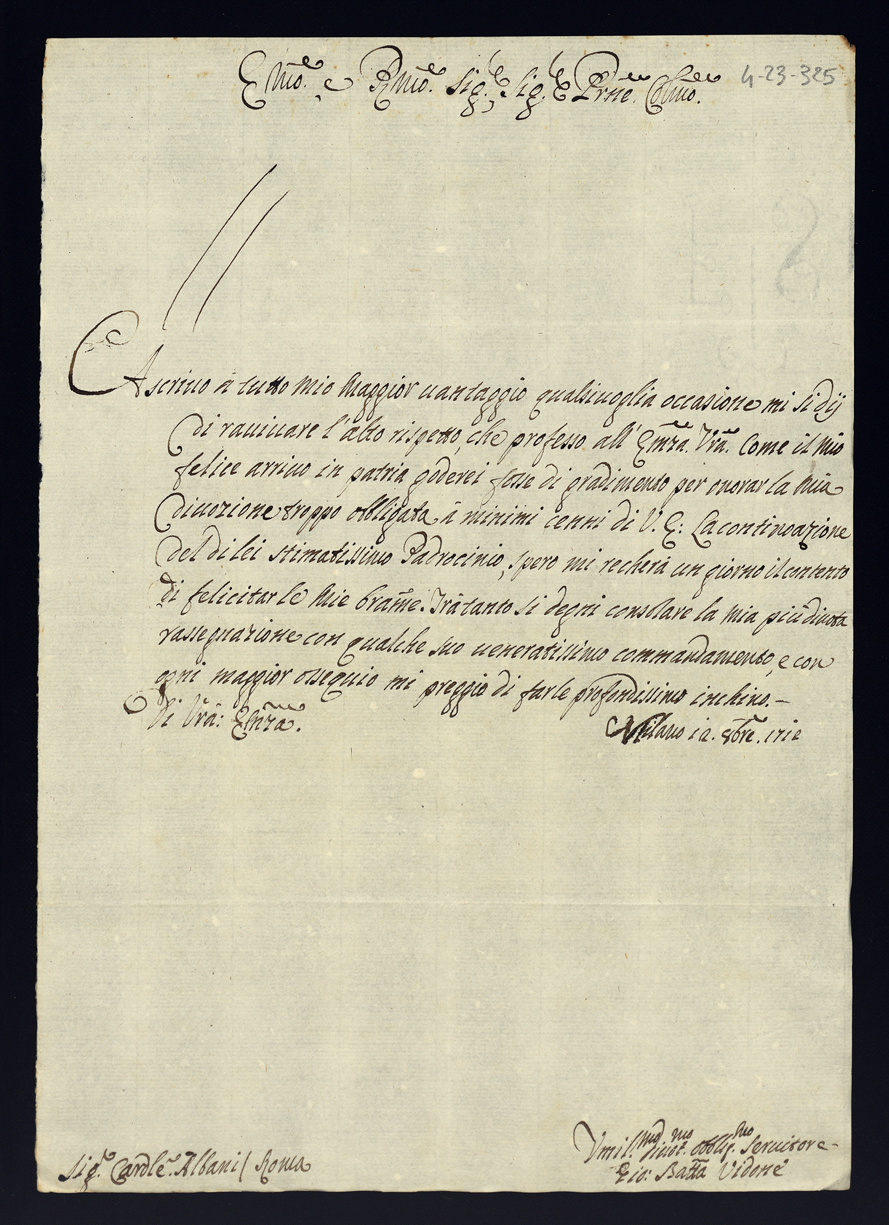 Emo. e Rmo. Sig.re Sig.re Prne. Colmo. 4-23-325
Ascrivo a tutto mio maggior vantaggio qualsivoglia occasione mi si dij
di ravivare l'alto rispetto, che professo all'Emza. Vra. Come il mio
felice arrivo in patria goderei fosse di gradimento per onorar la mia
divozione troppo obbligata à minimi cenni di V. E: La continoazione
del di lei stimatissimo Padrocinio, spero mi recherà un giorno il contento
di felicitar le mie brame. Trà tanto si degni consolare la mia più divota
rassegnazione con qualche suo veneratissimo commandamento, e con
ogni maggior ossequio mi preggio di farle profondissimo inchino.-
Di Vra: Emza.
Milano 12. 8bre.
Umil.mo Divot.mo obblig.mo Servitore
Sig.r Cardle. Albani / Roma
Gio: Batta Vidone